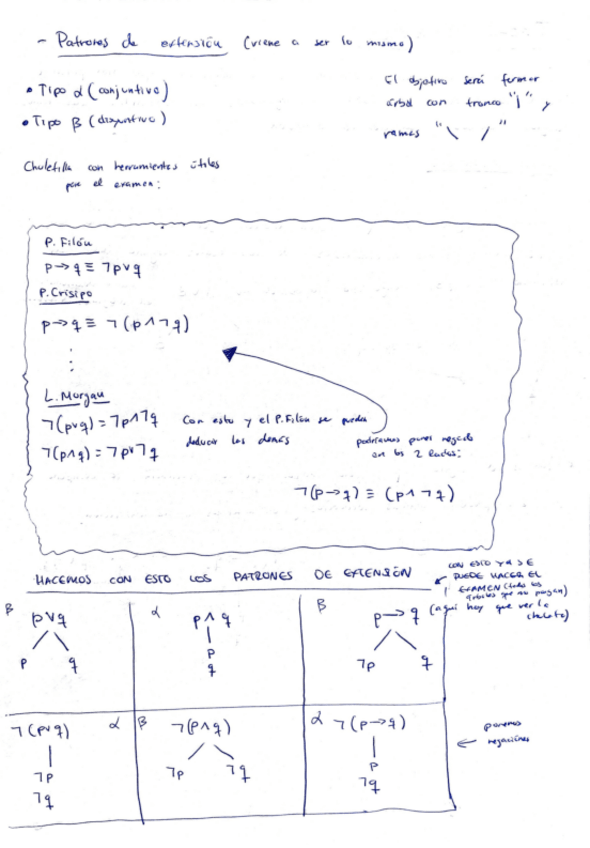 - Patrones de extensión (viene a ser lo mismo)
• Tipo α (conjuntivo)
• Tipo β (disyuntivo)
El objetivo será formar
árbol con tronco "|" y
ramas "\ /"
Chuletilla con herramientas útiles
para el examen:
P. Filón
p→q ≡ ¬p∨q
P. Crisipo
p→q ≡ ¬(p∧¬q)
⋮
L. Morgan
¬(p∨q) = ¬p∧¬q
¬(p∧q) = ¬p∨¬q
Con esto y el P. Filón se pueden
deducir los demás
podríamos poner negado
en los 2 lados:
¬(p→q) ≡ (p∧¬q)
HACEMOS CON ESTO LOS PATRONES DE EXTENSIÓN
CON ESTO YA SE
PUEDE HACER EL
EXAMEN (todos los
árboles que me pongan)
(aquí hay que ver la
chuleta)
β p∨q
p q
α p∧q
p
q
β p→q
¬p q
¬(p∨q) α
¬p
¬q
β ¬(p∧q)
¬p ¬q
α ¬(p→q)
p
¬q
ponemos
← negaciones